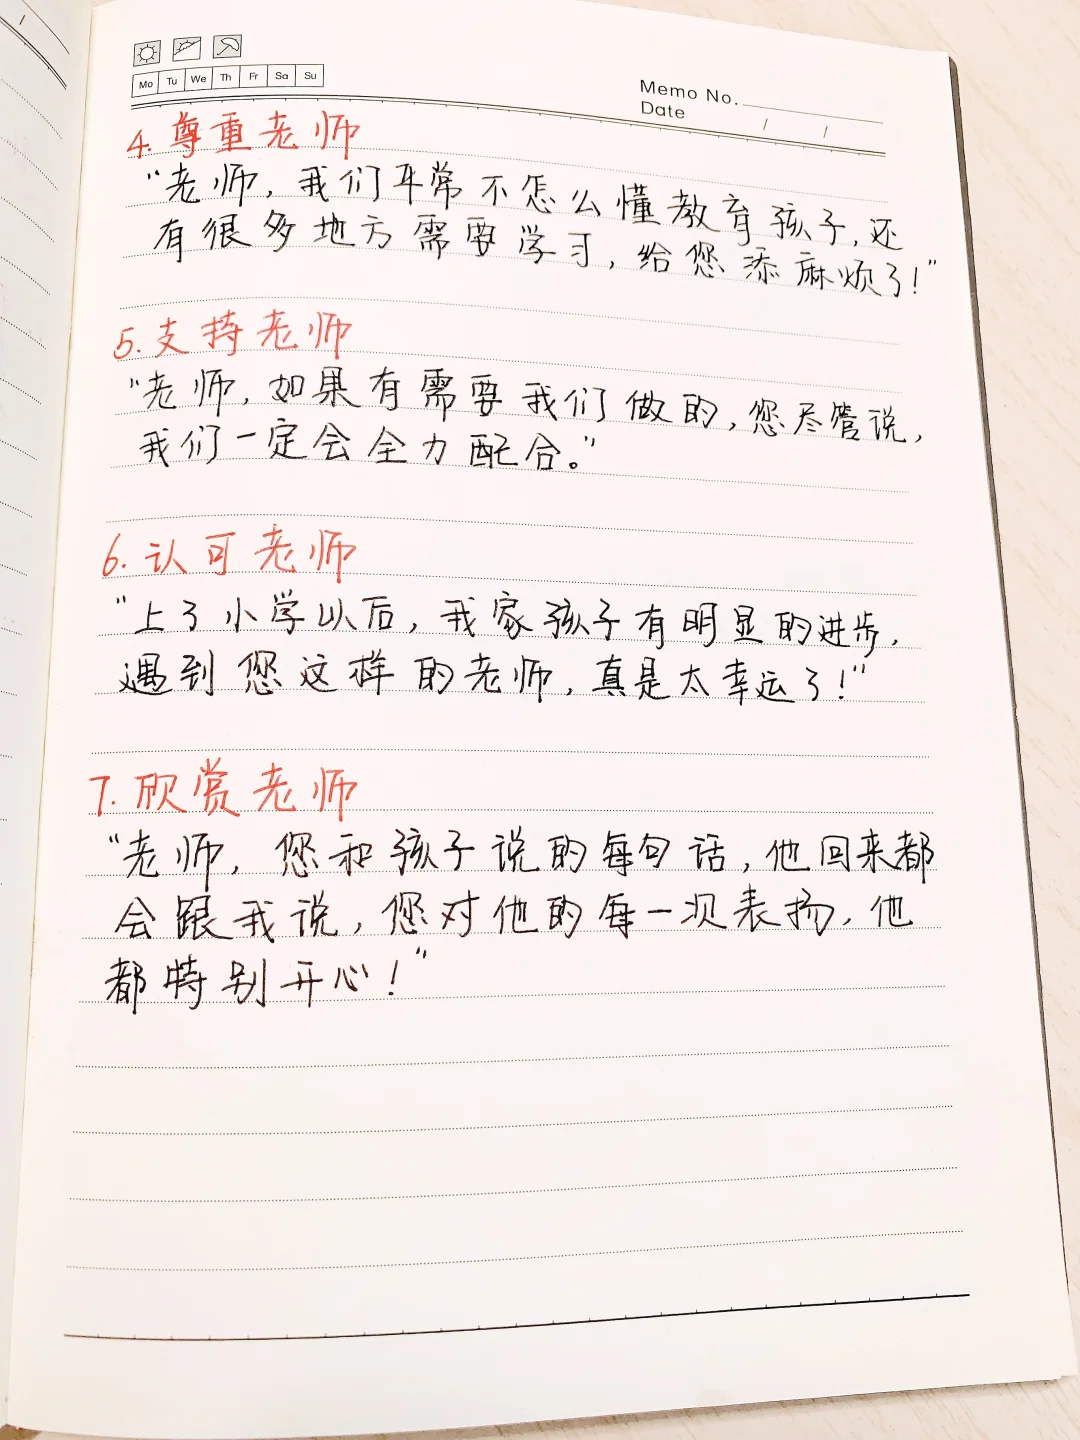 Mo Tu We Th Fr Sa Su
Memo No.
Date / /
4. 尊重老师
“老师, 我们平常不怎么懂教育孩子, 还
有很多地方需要学习, 给您添麻烦了!”
5. 支持老师
“老师, 如果有需要我们做的, 您尽管说,
我们一定会全力配合。”
6. 认可老师
“上了小学以后, 我家孩子有明显的进步,
遇到您这样的老师, 真是太幸运了!”
7. 欣赏老师
“老师, 您和孩子说的每句话, 他回来都
会跟我说, 您对他的每一次表扬, 他
都特别开心!”